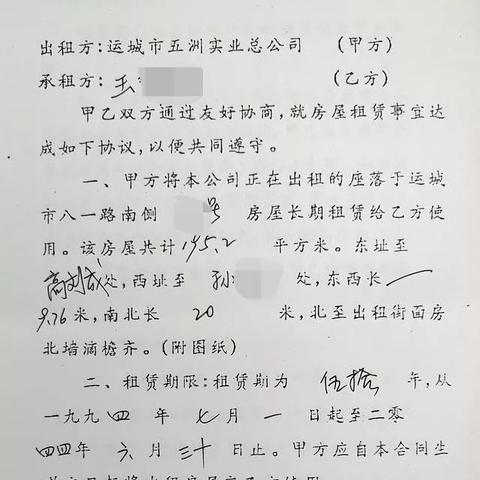 出租方:运城市五洲实业总公司 (甲方)
承租方: (乙方)
甲乙双方通过友好协商,就房屋租赁事宜达
成如下协议,以便共同遵守。
一、甲方将本公司正在出租的座落于运城
市八一路南侧 号 房屋长期租赁给乙方使
用。该房屋共计195.2 平方米。东址至
高对成处,西址至 孙 处,东西长
9.76米,南北长 20 米,北至出租街面房
北墙滴檐齐。(附图纸)
二、租赁期限:租赁期为 伍拾 年,从
一九九四 年 七 月 一 日起至二零
四四年 六 月 三十 日止。甲方应自本合同生